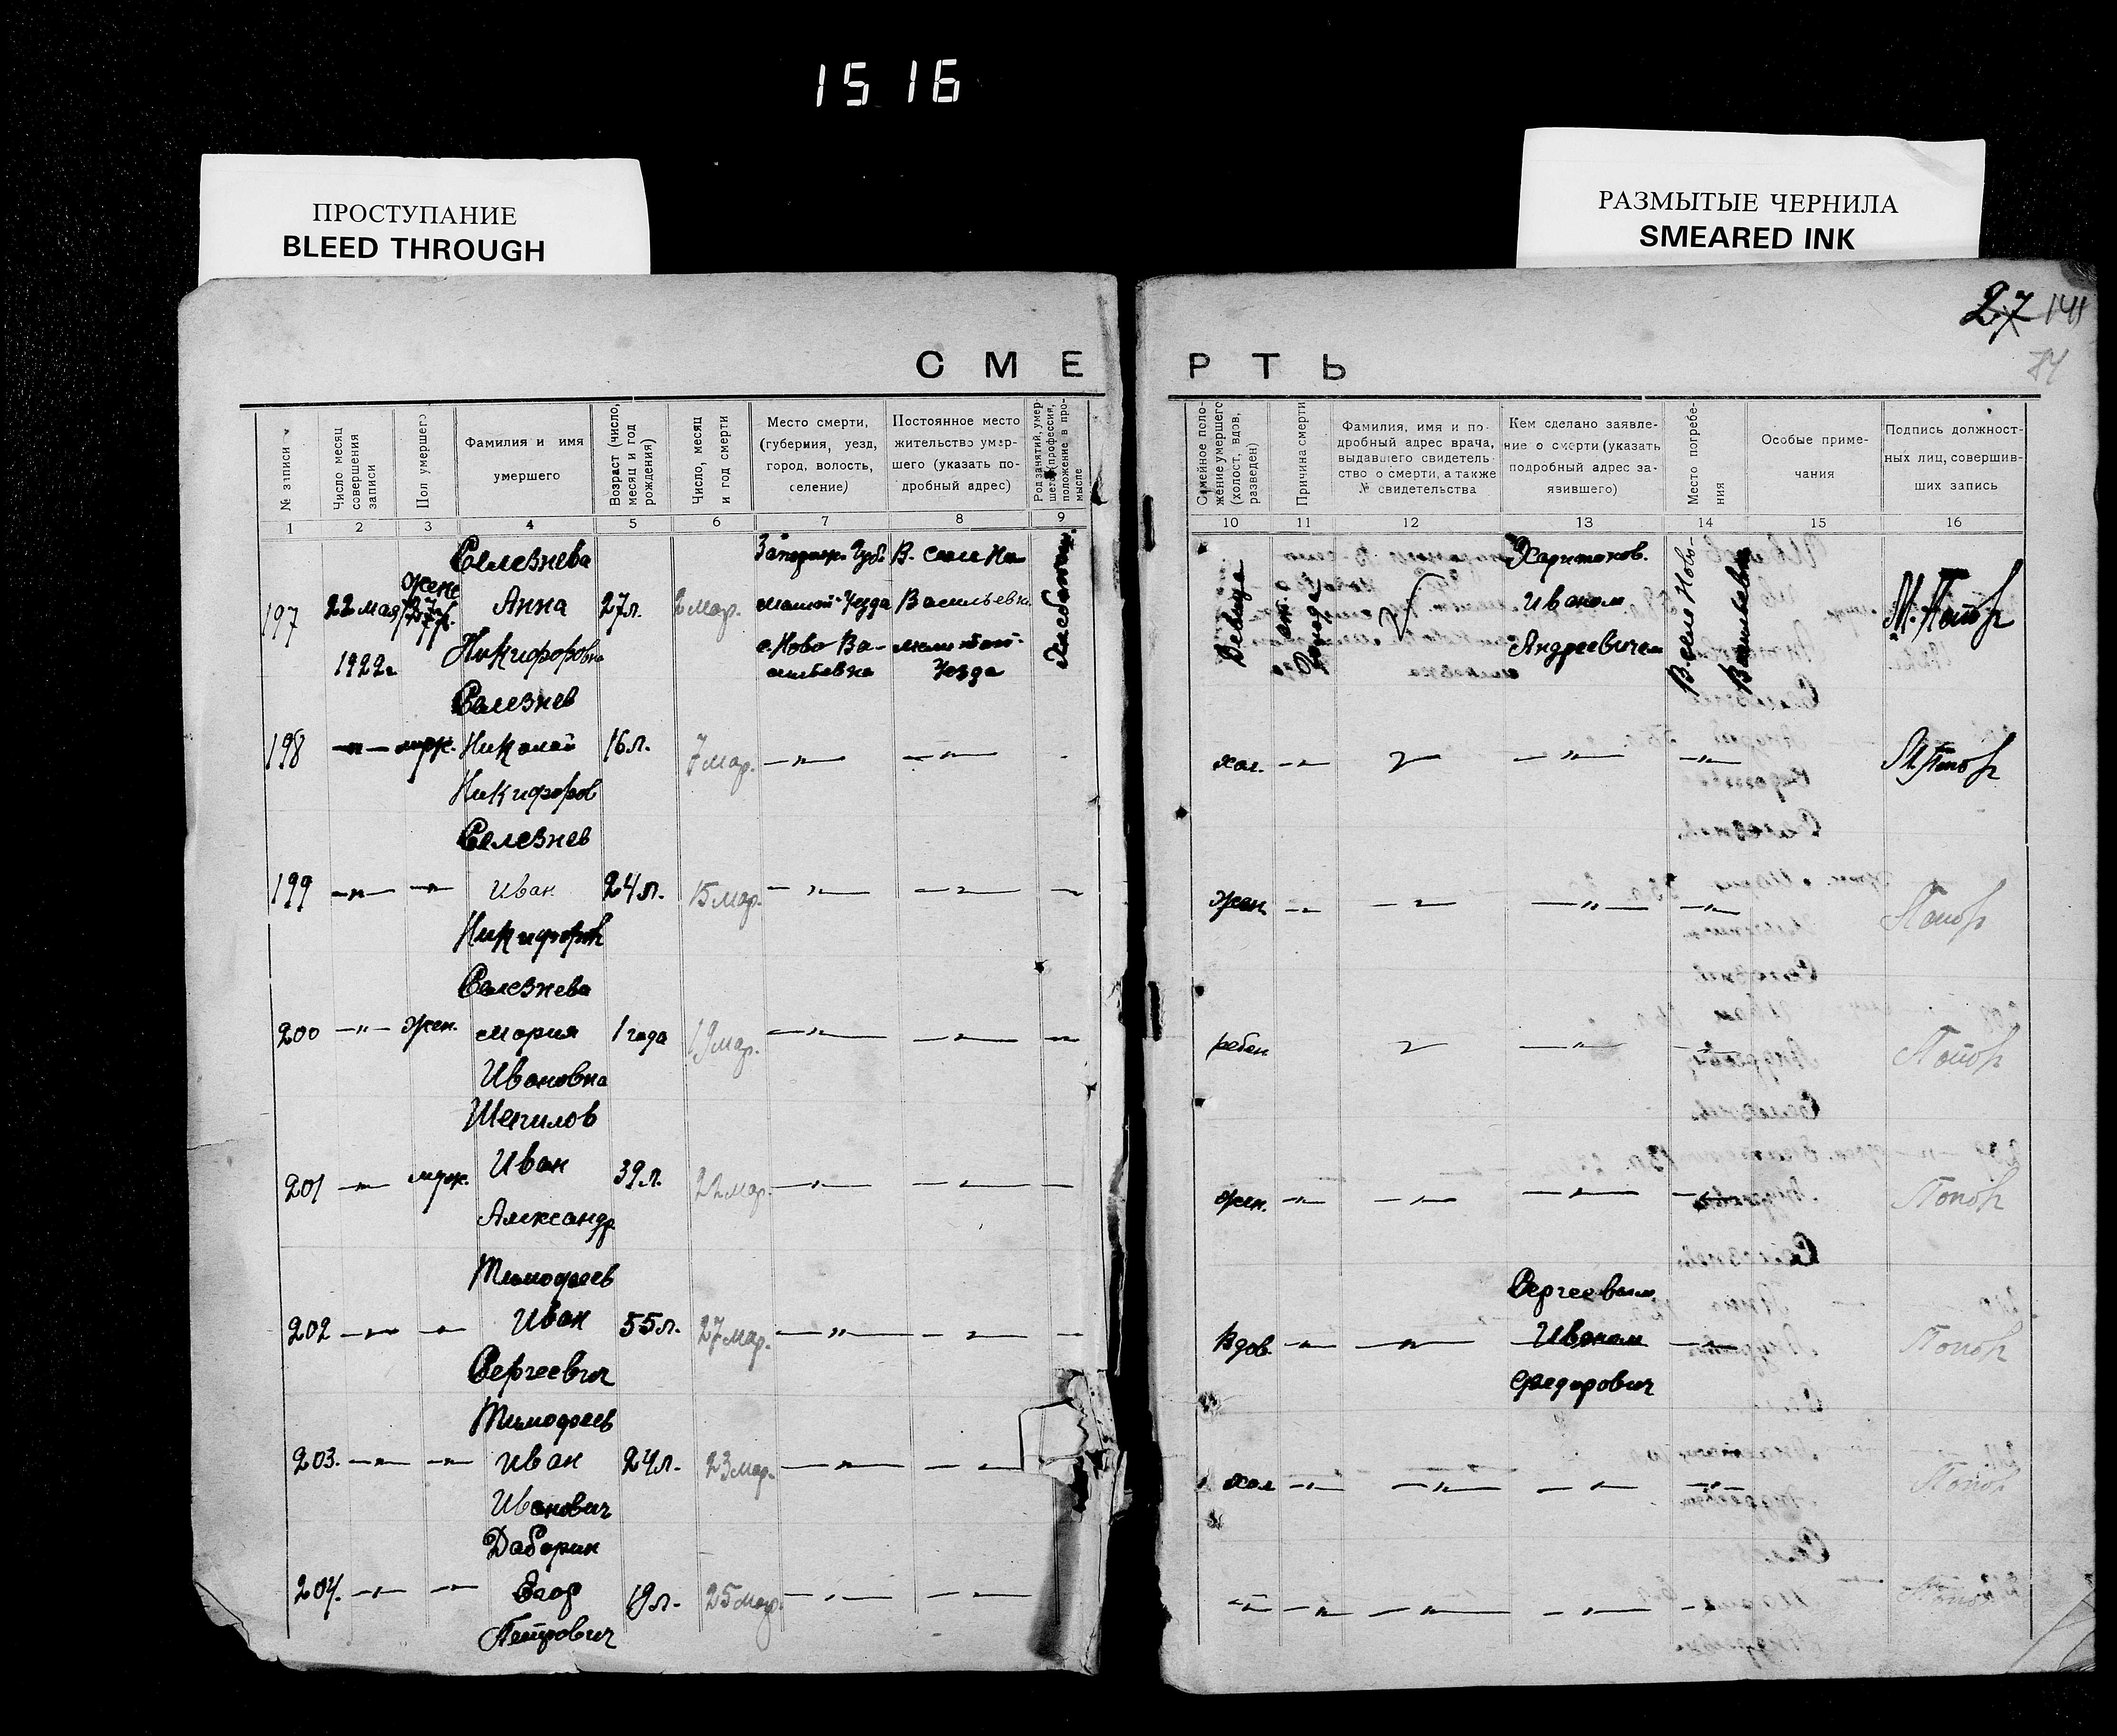 15 16
ПРОСТУПАНИЕ
BLEED THROUGH
РАЗМЫТЫЕ ЧЕРНИЛА
SMEARED INK
27
СМЕРТЬ
№ записи
Число месяц совершения записи
Пол умершего
Фамилия и имя
умершего
Возраст (число, месяц и год рождения)
Число, месяц и год смерти
Место смерти,
(губерния, уезд,
город, волость,
селение)
Постоянное место
жительство умер-
шего (указать по-
дробный адрес)
Род занятий, умер-
шего (профессия,
положение в про-
мысле
Семейное поло-
жение умершего
(холост, вдов,
разведен)
Причина смерти
Фамилия, имя и по-
дробный адрес врача,
выдавшего свидетель-
ство о смерти, а также
№ свидетельства
Кем сделано заявле-
ние о смерти (указать
подробный адрес за-
явившего)
Место погребе-
ния
Особые приме-
чания
Подпись должност-
ных лиц, совершив-
ших запись
1 2 3 4 5 6 7 8 9 10 11 12 13 14 15 16
Селезнева
197 22 мая Анна 27л. 2 мар.
1922г Никифоровна
с. Ново Ва-
сильевка
В. селе Но
Васильевк
Уезда
Девица
Харитонов.
Иваном
Андреевичем
В селе Ново-
Васильевки
М. Попов
Селезнев
198 —"— муж. Николай 16л. 7 мар. —"— —"— хол. —"— —"— —"— М Попов
Никифоров
Селезнев
199 —"— —"— Иван 24л. 15 мар. —"— —"— жен. —"— —"— —"— —"— Попов
Никифоров
Селезнева
200 —"— жен. Мария 1 года 19 мар. —"— —"— ребен —"— —"— Попов
Ивановна
Шепилов
201 —"— муж. Иван 39л. 22 мар. —"— —"— жен. —"— —"— —"— —"— Попов
Александр
Тимофеев
202 —"— —"— Иван 55л. 27 мар. —"— —"— вдов. —"— —"— Сергеевым Иваном Федорович —"— Попов
Сергеевич
Тимофеев
203. —"— —"— Иван 24л. 23 мар. —"— —"— хол —"— —"— —"— —"— Попов
Иванович
204. —"— —"— Егор 19л. 25 мар. —"— —"— —"— —"— —"— —"—
Петрович